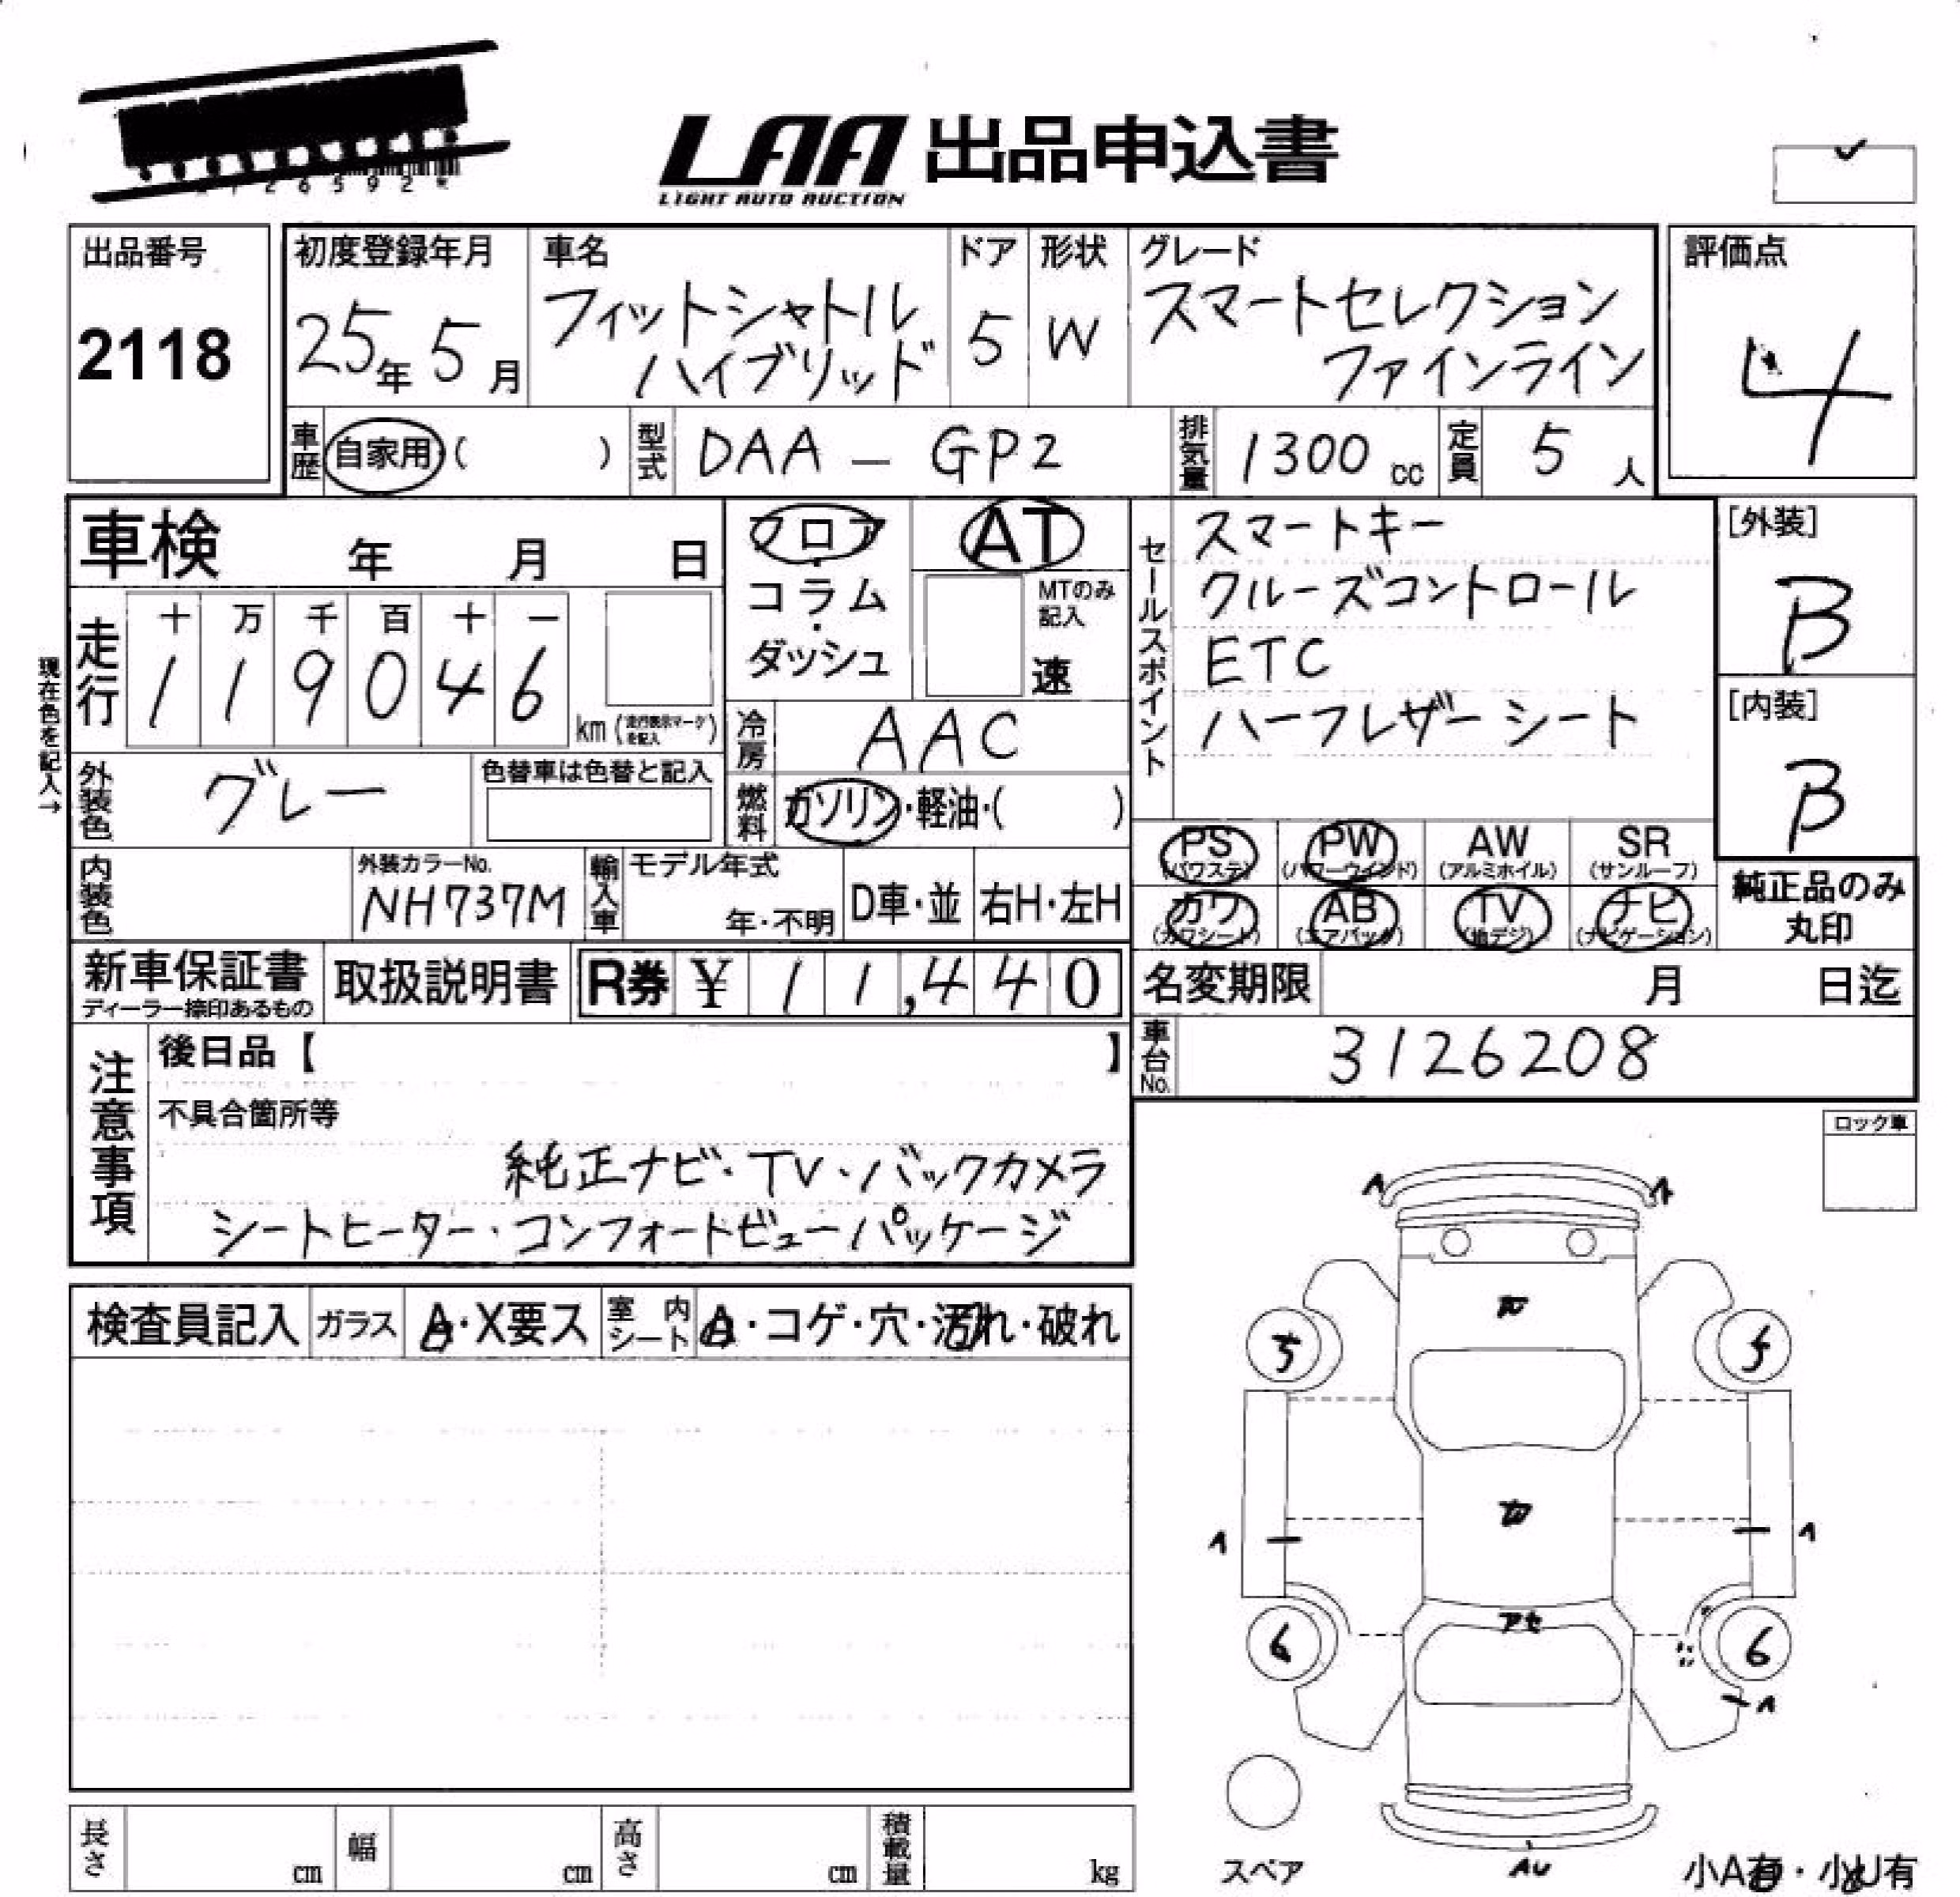 26592*
LAA 出品申込書
LIGHT AUTO AUCTION
出品番号
2118
初度登録年月
25年 5月
車名
フィットシャトル
ハイブリッド
ドア
5
形状
W
グレード
スマートセレクション
ファインライン
評価点
4
車歴
自家用 ( )
型式
DAA - GP2
排気量
1300 cc
定員
5 人
車検 年 月 日
フロア・
コラム・
ダッシュ
AT
MTのみ
記入
速
セールスポイント
スマートキー
クルーズコントロール
ETC
ハーフレザーシート
[外装]
B
[内装]
B
現在色を記入→
走行
十 万 千 百 十 一
1 1 9 0 4 6
km (走行表示マークを記入)
冷房
AAC
外装色
グレー
色替車は色替と記入
燃料
ガソリン・軽油・( )
PS (パワステ)
PW (パワーウインド)
AW (アルミホイル)
SR (サンルーフ)
カワ (カワシート)
AB (エアバック)
TV (地デジ)
ナビ (ナビゲーション)
純正品のみ
丸印
内装色
外装カラーNo.
NH737M
輸入車
モデル年式
年・不明
D車・並
右H・左H
新車保証書
ディーラー捺印あるもの
取扱説明書
R券 ¥ 11,440
名変期限 月 日迄
車台No.
3126208
注意事項
後日品【 】
不具合箇所等
純正ナビ・TV・バックカメラ
シートヒーター・コンフォートビューパッケージ
ロック車
検査員記入
ガラス
A・X要ス
室内
シート
A・コゲ・穴・汚れ・破れ
5
5
アセ
6
6
スペア
AU
小A有・小U有
長さ cm
幅 cm
高さ cm
積載量 kg